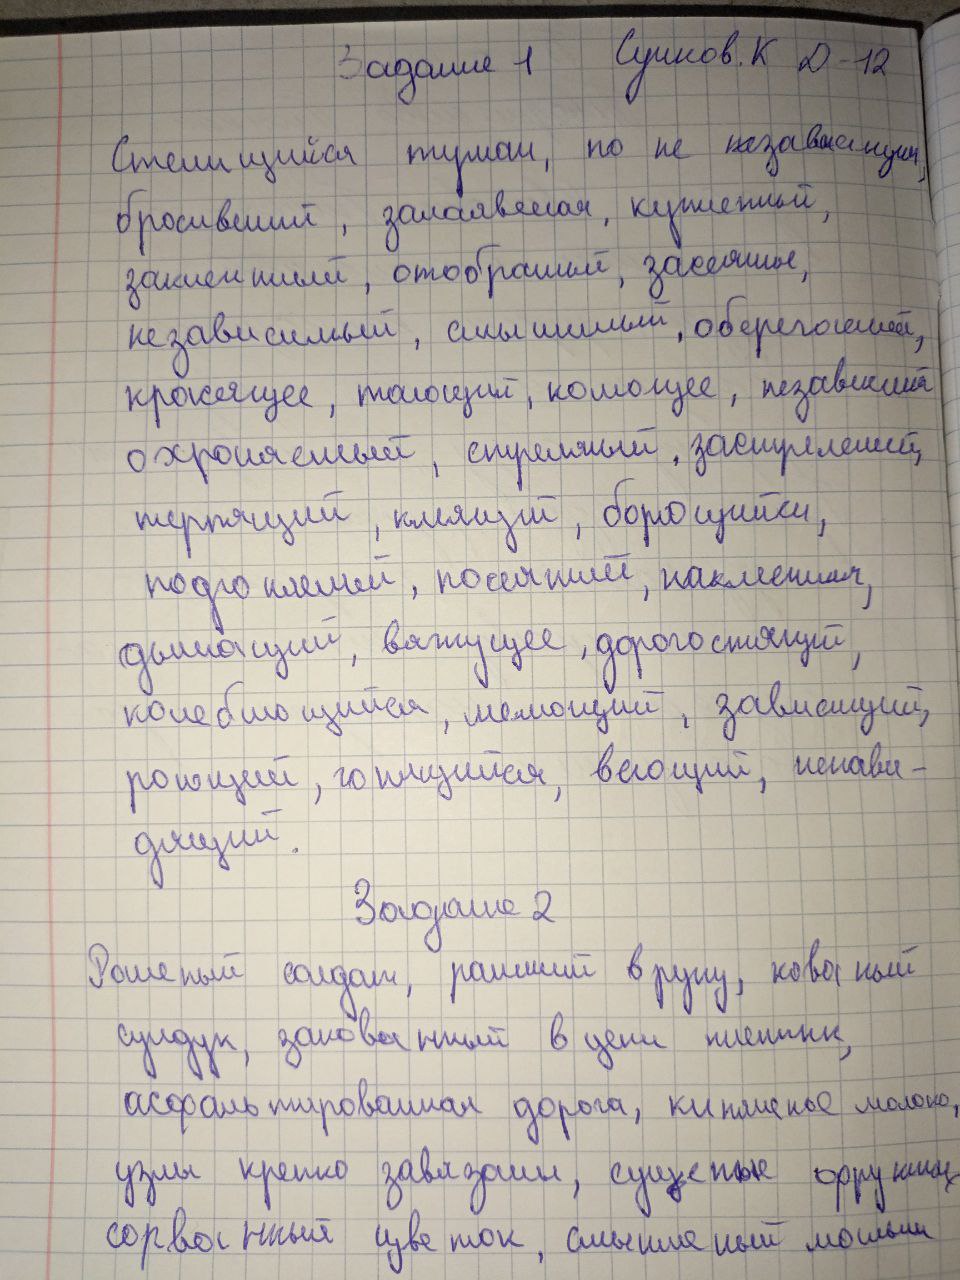 Задание 1 Сушков. К Д-12
Стелищийся туман, но не незавысищий,
бросивший, залаявшая, купленный,
заклеенный, отобранный, засеянные,
независимый, слышимый, оберегаемый,
красящее, тающий, колющее, независший
охраняемый, стреляный, застреленный,
терпящий, клеящий, борющийся,
подгоняемый, посеянный, наклеенная,
дышащий, вяжущее, дорогостоящий,
колеблющийся, мелющий, зависящий,
роющий, гонящийся, веющий, ненави-
дящий.
Задание 2
Раненый солдат, раненный в руку, кованый
сундук, закованный в цепи пленник,
асфальтированная дорога, кипяченое молоко,
узлы крепко завязаны, сушеные фрукты,
сорванный цветок, смышленый малыш